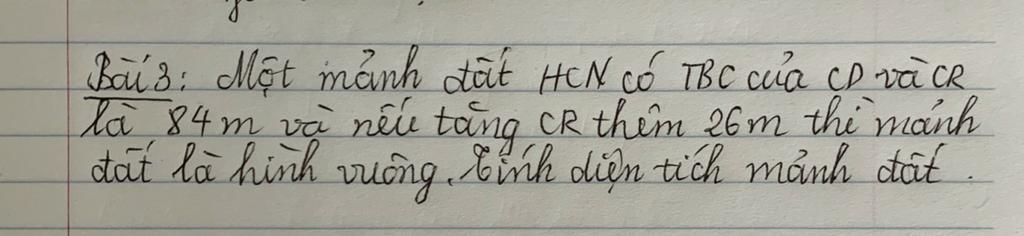 Bài 3: Một mảnh đất HCN có TBC của CD và CR
là 84m và nếu tăng CR thêm 26m thì mảnh
đất là hình vuông. Tính diện tích mảnh đất.